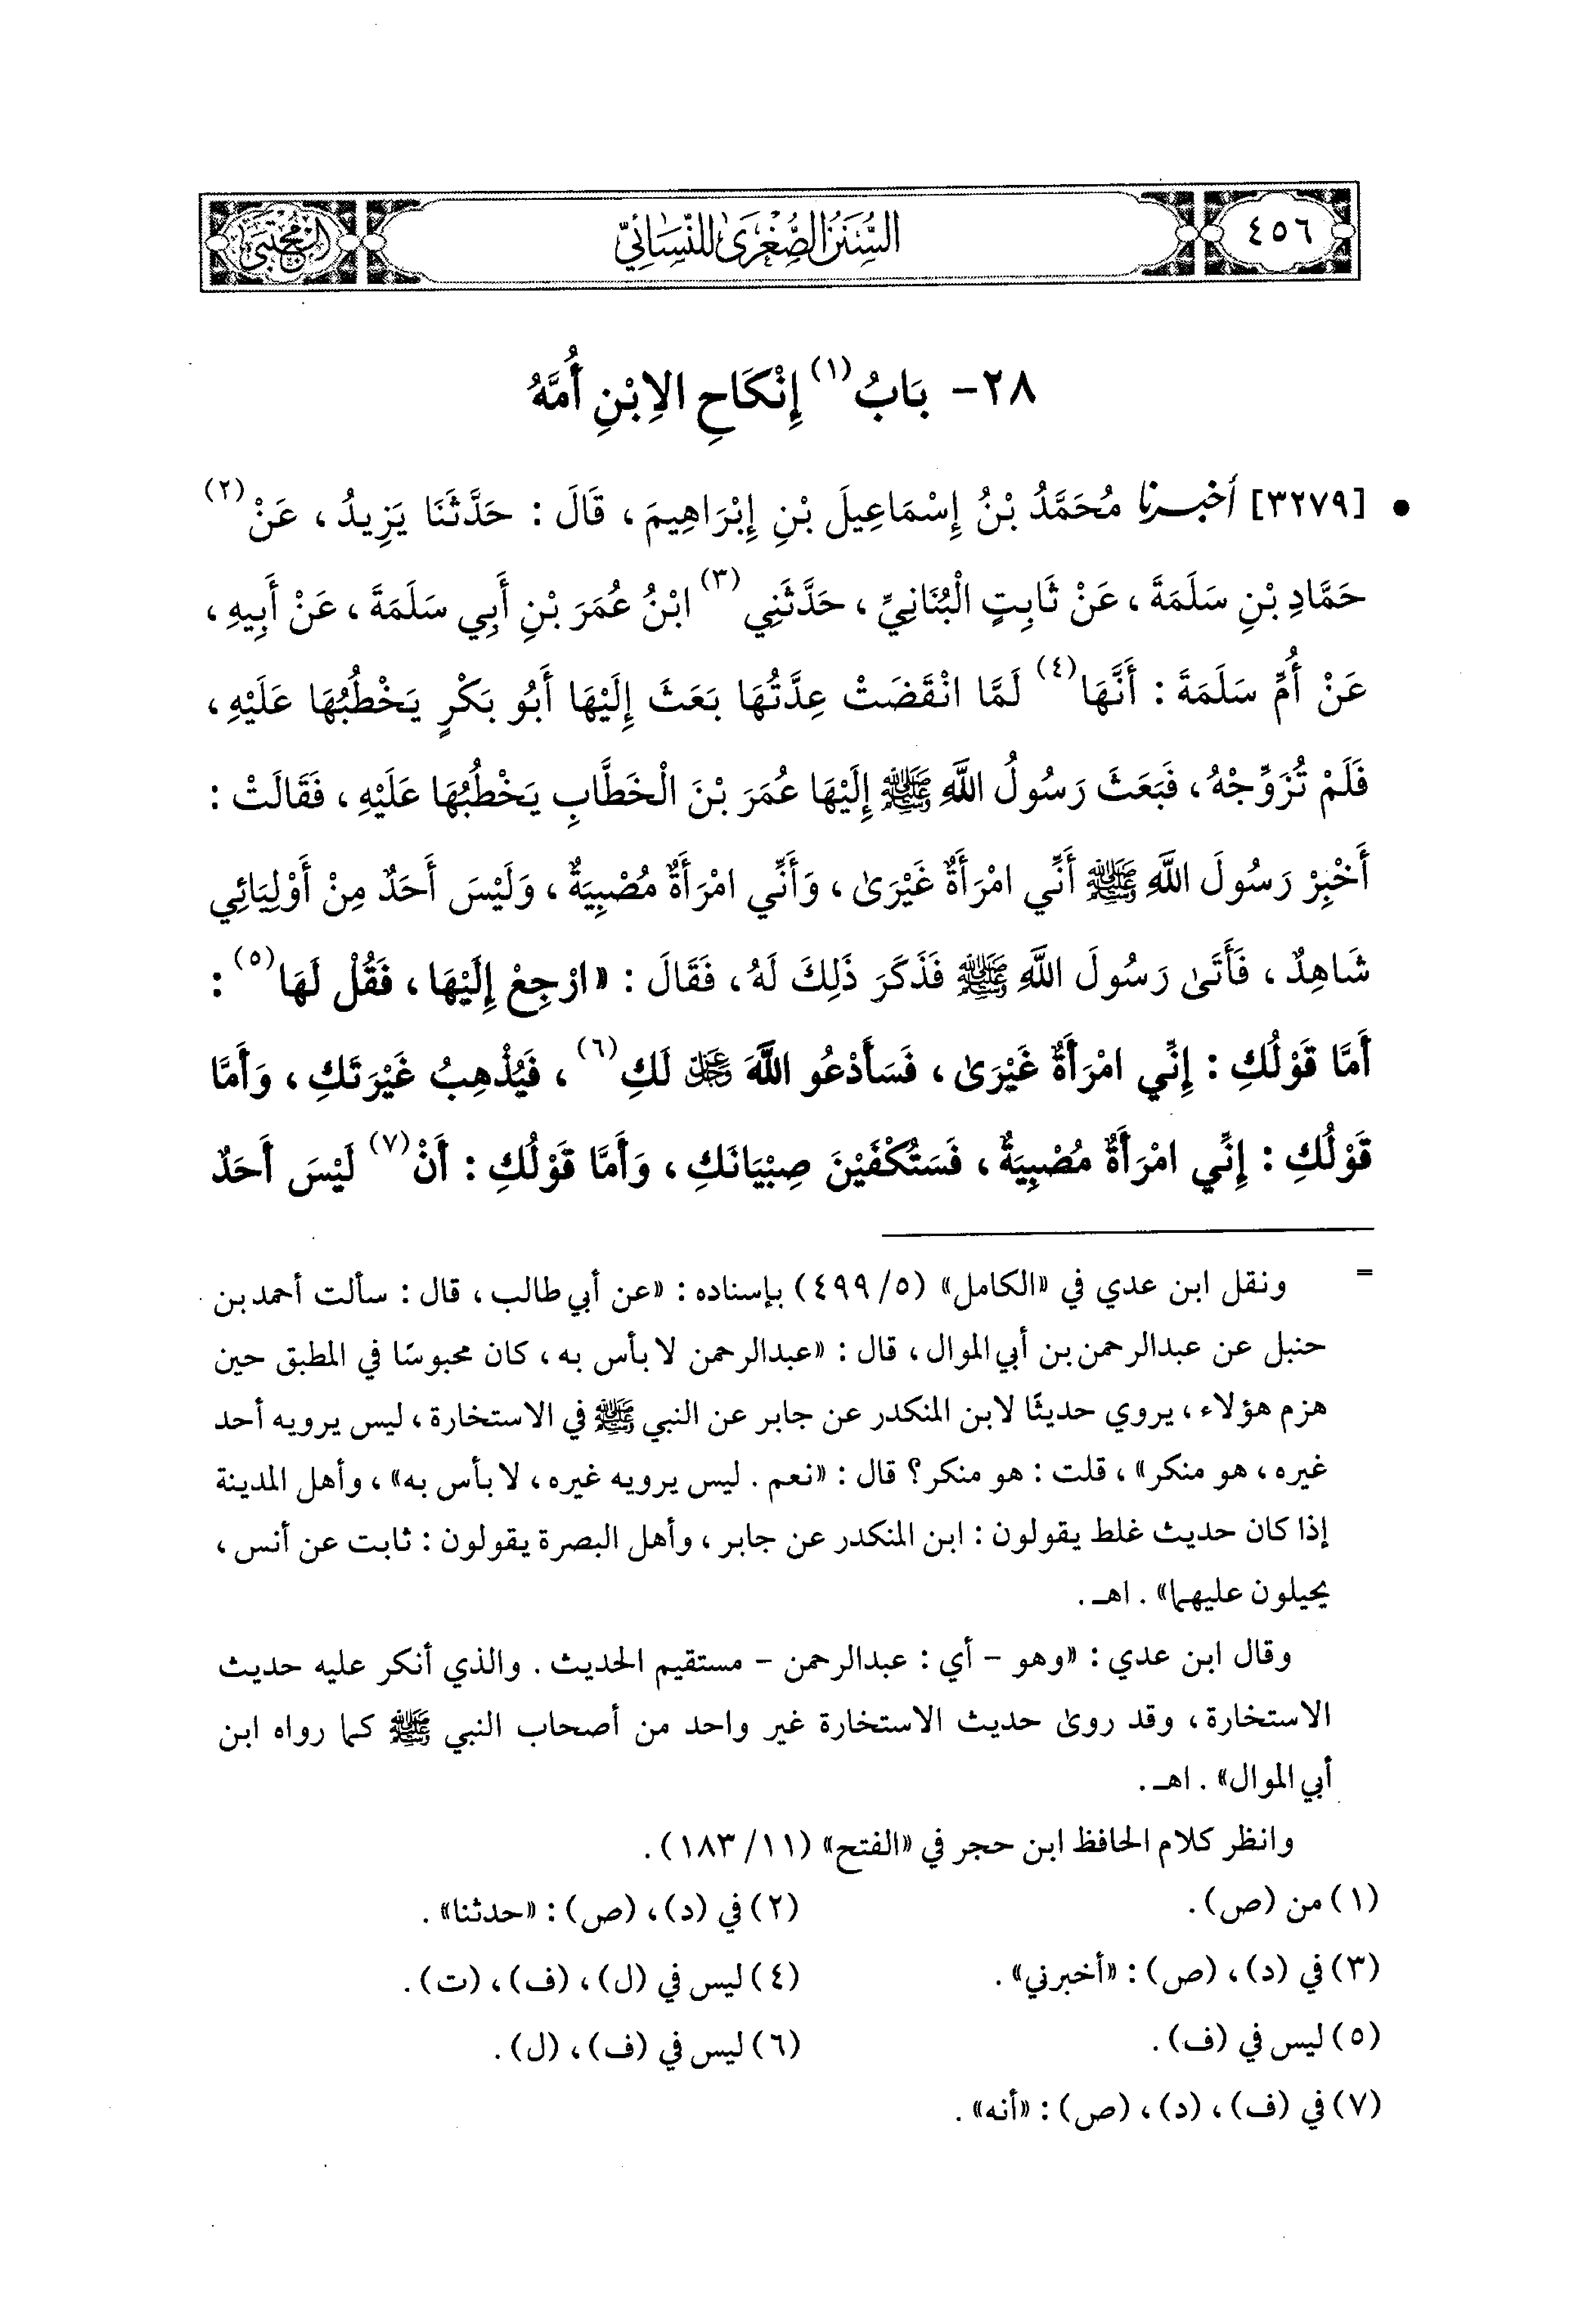 ٤٥٦
السُّنَنُ الصُّغْرَىٰ لِلنَّسَائِيِّ
المجتبى
٢٨- بَابُ(١) إِنْكَاحِ الِابْنِ أُمَّهُ
• [٣٢٧٩] أخبرنا مُحَمَّدُ بْنُ إِسْمَاعِيلَ بْنِ إِبْرَاهِيمَ، قَالَ : حَدَّثَنَا يَزِيدُ، عَنْ(٢)
حَمَّادِ بْنِ سَلَمَةَ، عَنْ ثَابِتٍ الْبُنَانِيِّ، حَدَّثَنِي(٣) ابْنُ عُمَرَ بْنِ أَبِي سَلَمَةَ، عَنْ أَبِيهِ،
عَنْ أُمِّ سَلَمَةَ : أَنَّهَا(٤) لَمَّا انْقَضَتْ عِدَّتُهَا بَعَثَ إِلَيْهَا أَبُو بَكْرٍ يَخْطُبُهَا عَلَيْهِ،
فَلَمْ تُزَوِّجْهُ، فَبَعَثَ رَسُولُ اللَّهِ ﷺ إِلَيْهَا عُمَرَ بْنَ الْخَطَّابِ يَخْطُبُهَا عَلَيْهِ، فَقَالَتْ :
أَخْبِرْ رَسُولَ اللَّهِ ﷺ أَنِّي امْرَأَةٌ غَيْرَىٰ، وَأَنِّي امْرَأَةٌ مُصْبِيَةٌ، وَلَيْسَ أَحَدٌ مِنْ أَوْلِيَائِي
شَاهِدٌ، فَأَتَىٰ رَسُولَ اللَّهِ ﷺ فَذَكَرَ ذَلِكَ لَهُ، فَقَالَ : «ارْجِعْ إِلَيْهَا، فَقُلْ لَهَا(٥) :
أَمَّا قَوْلُكِ : إِنِّي امْرَأَةٌ غَيْرَىٰ، فَسَأَدْعُو اللَّهَ ﷿ لَكِ(٦)، فَيُذْهِبُ غَيْرَتَكِ، وَأَمَّا
قَوْلُكِ : إِنِّي امْرَأَةٌ مُصْبِيَةٌ، فَسَتُكْفَيْنَ صِبْيَانَكِ، وَأَمَّا قَوْلُكِ : أَنْ(٧) لَيْسَ أَحَدٌ
= ونقل ابن عدي في «الكامل» (٥/ ٤٩٩) بإسناده : «عن أبي طالب، قال : سألت أحمد بن
حنبل عن عبدالرحمن بن أبي الموال، قال : «عبدالرحمن لا بأس به، كان محبوسًا في المطبق حين
هزم هؤلاء، يروي حديثًا لابن المنكدر عن جابر عن النبي ﷺ في الاستخارة، ليس يرويه أحد
غيره، هو منكر»، قلت : هو منكر؟ قال : «نعم . ليس يرويه غيره، لا بأس به»، وأهل المدينة
إذا كان حديث غلط يقولون : ابن المنكدر عن جابر، وأهل البصرة يقولون : ثابت عن أنس،
يحيلون عليهما» . اهـ .
وقال ابن عدي : «وهو - أي : عبدالرحمن - مستقيم الحديث . والذي أنكر عليه حديث
الاستخارة، وقد روىٰ حديث الاستخارة غير واحد من أصحاب النبي ﷺ كما رواه ابن
أبي الموال» . اهـ .
وانظر كلام الحافظ ابن حجر في «الفتح» (١١/ ١٨٣) .
(١) من (ص) .
(٢) في (د)، (ص) : «حدثنا» .
(٣) في (د)، (ص) : «أخبرني» .
(٤) ليس في (ل)، (ف)، (ت) .
(٥) ليس في (ف) .
(٦) ليس في (ف)، (ل) .
(٧) في (ف)، (د)، (ص) : «أنه» .